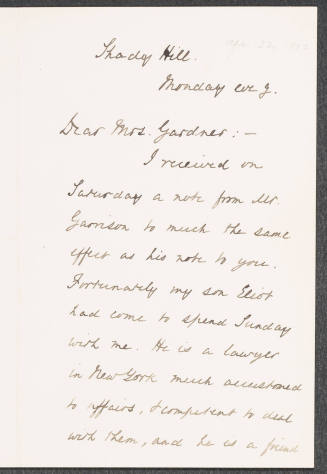 Shady Hill.
Monday evg.
Dear Mrs. Gardner:—
I received on
Saturday a note from Mr.
Garrison to much the same
effect as his note to you.
Fortunately my son Eliot
had come to spend Sunday
with me. He is a lawyer
in New York much accustomed
to affairs, & competent to deal
with them, and he is a friend